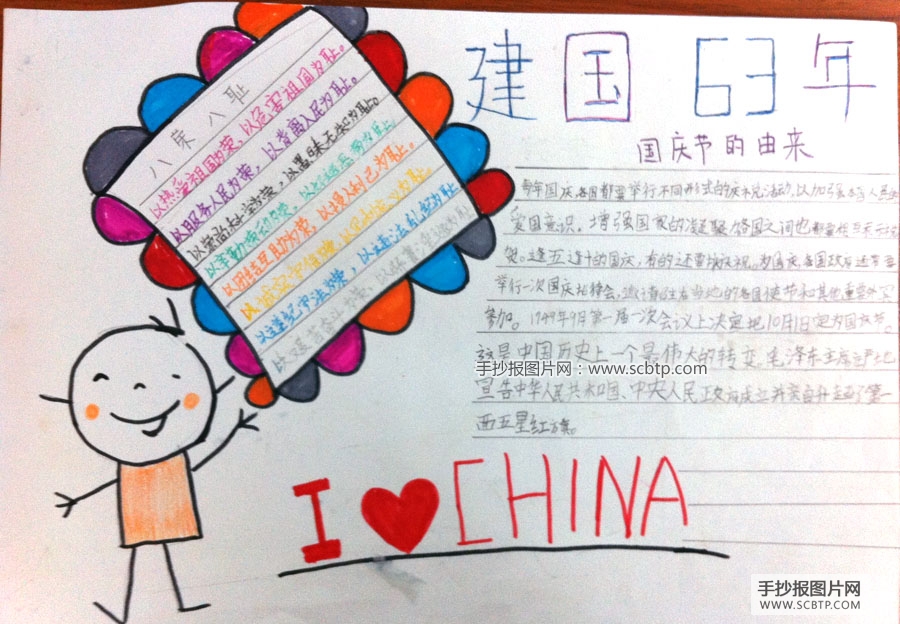 建国63年
国庆节的由来
每年国庆,各国都要举行不同形式的庆祝活动,以加强本国人民的
爱国意识。增强国家的凝聚 各国之间也都要相互表示祝
贺。逢五逢十的国庆,有的还要 庆祝。为国庆,各国政府还常要
举行一次国庆招待会,邀请 驻在当地的各国使节和其他重要
参加。1949年9月第一届一次会议上决定把10月1日定为国庆节。
这是中国历史上一个最伟大的转变,毛泽东主席
宣告中华人民共和国、中央人民政府成立并亲自升起了第一
面五星红旗。
八荣八耻
以热爱祖国为荣,以危害祖国为耻。
以服务人民为荣,以背离人民为耻。
以崇尚科学为荣,以愚昧无知为耻。
以辛勤劳动为荣,以好逸恶劳为耻
以团结互助为荣,以损人利己为耻。
以诚实守信为荣,以见利忘义为耻。
以遵纪守法为荣,以违法乱纪为耻
以艰苦奋斗为荣,以骄奢淫逸为耻
I CHINA
手抄报图片网:www.scbtp.com
手抄报图片网
WWW.SCBTP.COM